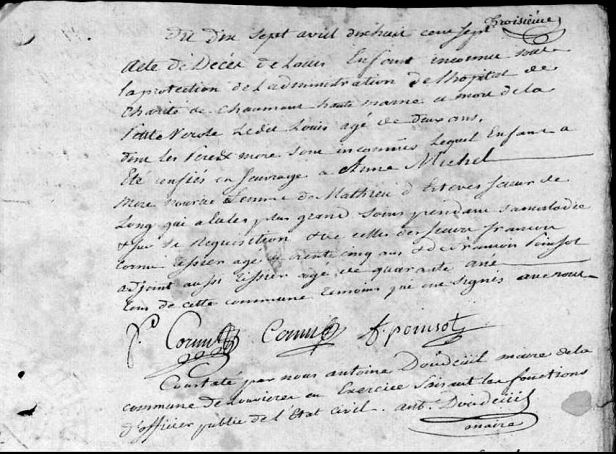 Troisième
Du Dix Sept avril dix huit cent sept
Acte de Décès de Louis Enfant inconnu sous
la protection de l'administration de l'hopital de
Charité de Chaumont haute marne a mort de la
petite Verole Ledit Louis agé de deux ans,
dont les Pere et mere sont inconnus Lequel Enfant a
Eté confiés en a Anne Michel
Mere nourice femme de Mathieu
Long qui a les plus grand Soins pendant sa maladie
et sur Sa Requisition et de celles des Sieurs francois
Cornu agé de trente cinq ans et de francois Poinsot
adjoint aussi agé de quarante ans
tous de cette commune temoins qui ont Signés avec nous
Cornu Cornu f. poinsot
Constaté par nous antoine Doudeüil maire de la
commune de en Exercice faisant les fonctions
d'officier public de l'Etat civil. ant. Doudeüil
maire